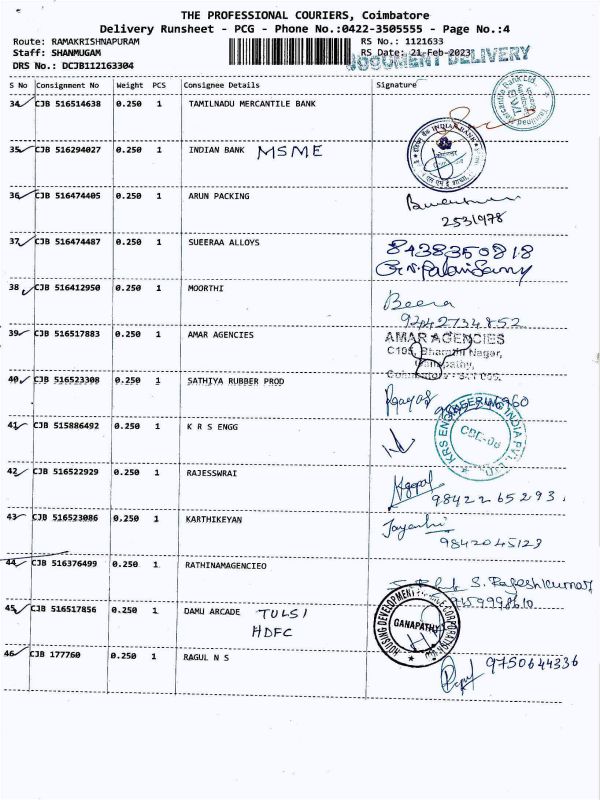 THE PROFESSIONAL COURIERS, Coimbatore
Delivery Runsheet - PCG - Phone No.:0422-3505555 - Page No.:4
Route: RAMAKRISHNAPURAM RS No.: 1121633
Staff: SHANMUGAM RS Date: 21-Feb-2023
DOCUMENT DELIVERY
DRS No.: DCJB112163304
S No Consignment No Weight PCS Consignee Details Signature
34 CJB 516514638 0.250 1 TAMILNADU MERCANTILE BANK
35 CJB 516294027 0.250 1 INDIAN BANK MSME
INDIAN BANK
36 CJB 516474405 0.250 1 ARUN PACKING
2531978
37 CJB 516474487 0.250 1 SUEERAA ALLOYS
8438350818
38 CJB 516412950 0.250 1 MOORTHI
Beera
9242734852
39 CJB 516517883 0.250 1 AMAR AGENCIES
AMAR AGENCIES
C105, Bharathi Nagar,
Ganapathy,
40 CJB 516523308 0.250 1 SATHIYA RUBBER PROD
41 CJB 515886492 0.250 1 K R S ENGG
KRS ENGINEERING INDIA PVT. LTD
CBE-06
42 CJB 516522929 0.250 1 RAJESSWRAI
9842265293
43 CJB 516523086 0.250 1 KARTHIKEYAN
9842045129
44 CJB 516376499 0.250 1 RATHINAMAGENCIEO
S. Rajeshkumar
45 CJB 516517856 0.250 1 DAMU ARCADE TULSI
HDFC
GANAPATHY
46 CJB 177760 0.250 1 RAGUL N S
9750644336